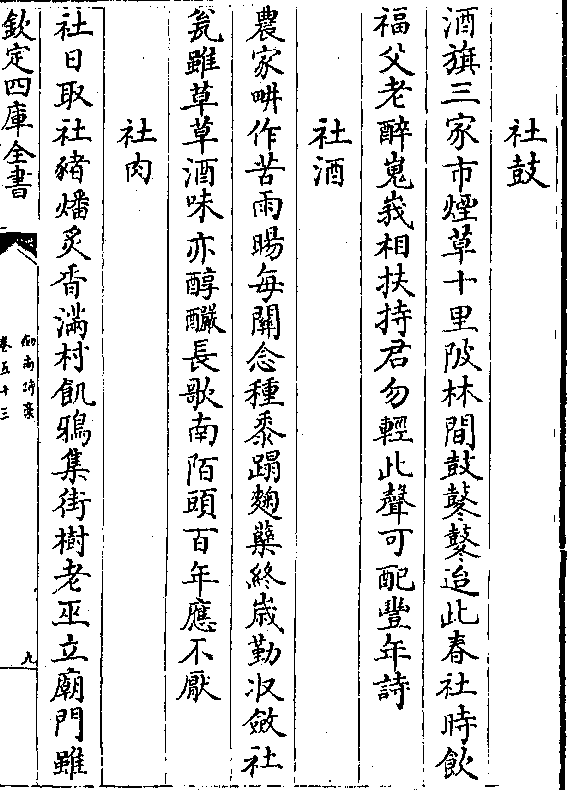 社鼓
酒旗三家市煙草十里陂林間鼓鼕鼕迨此春社時飲
福父老醉嵬峩相扶持君勿輕此聲可配豐年詩
社酒
農家畊作苦雨暘每關念種黍蹋麴蘗終歲勤收斂社
瓮雖草草酒味亦醇釅長歌南陌頭百年應不厭
社肉
社日取社豬燔炙香滿村飢鴉集街樹老巫立廟門雖
欽定四庫全書
劍南詩藁
卷五十三
九